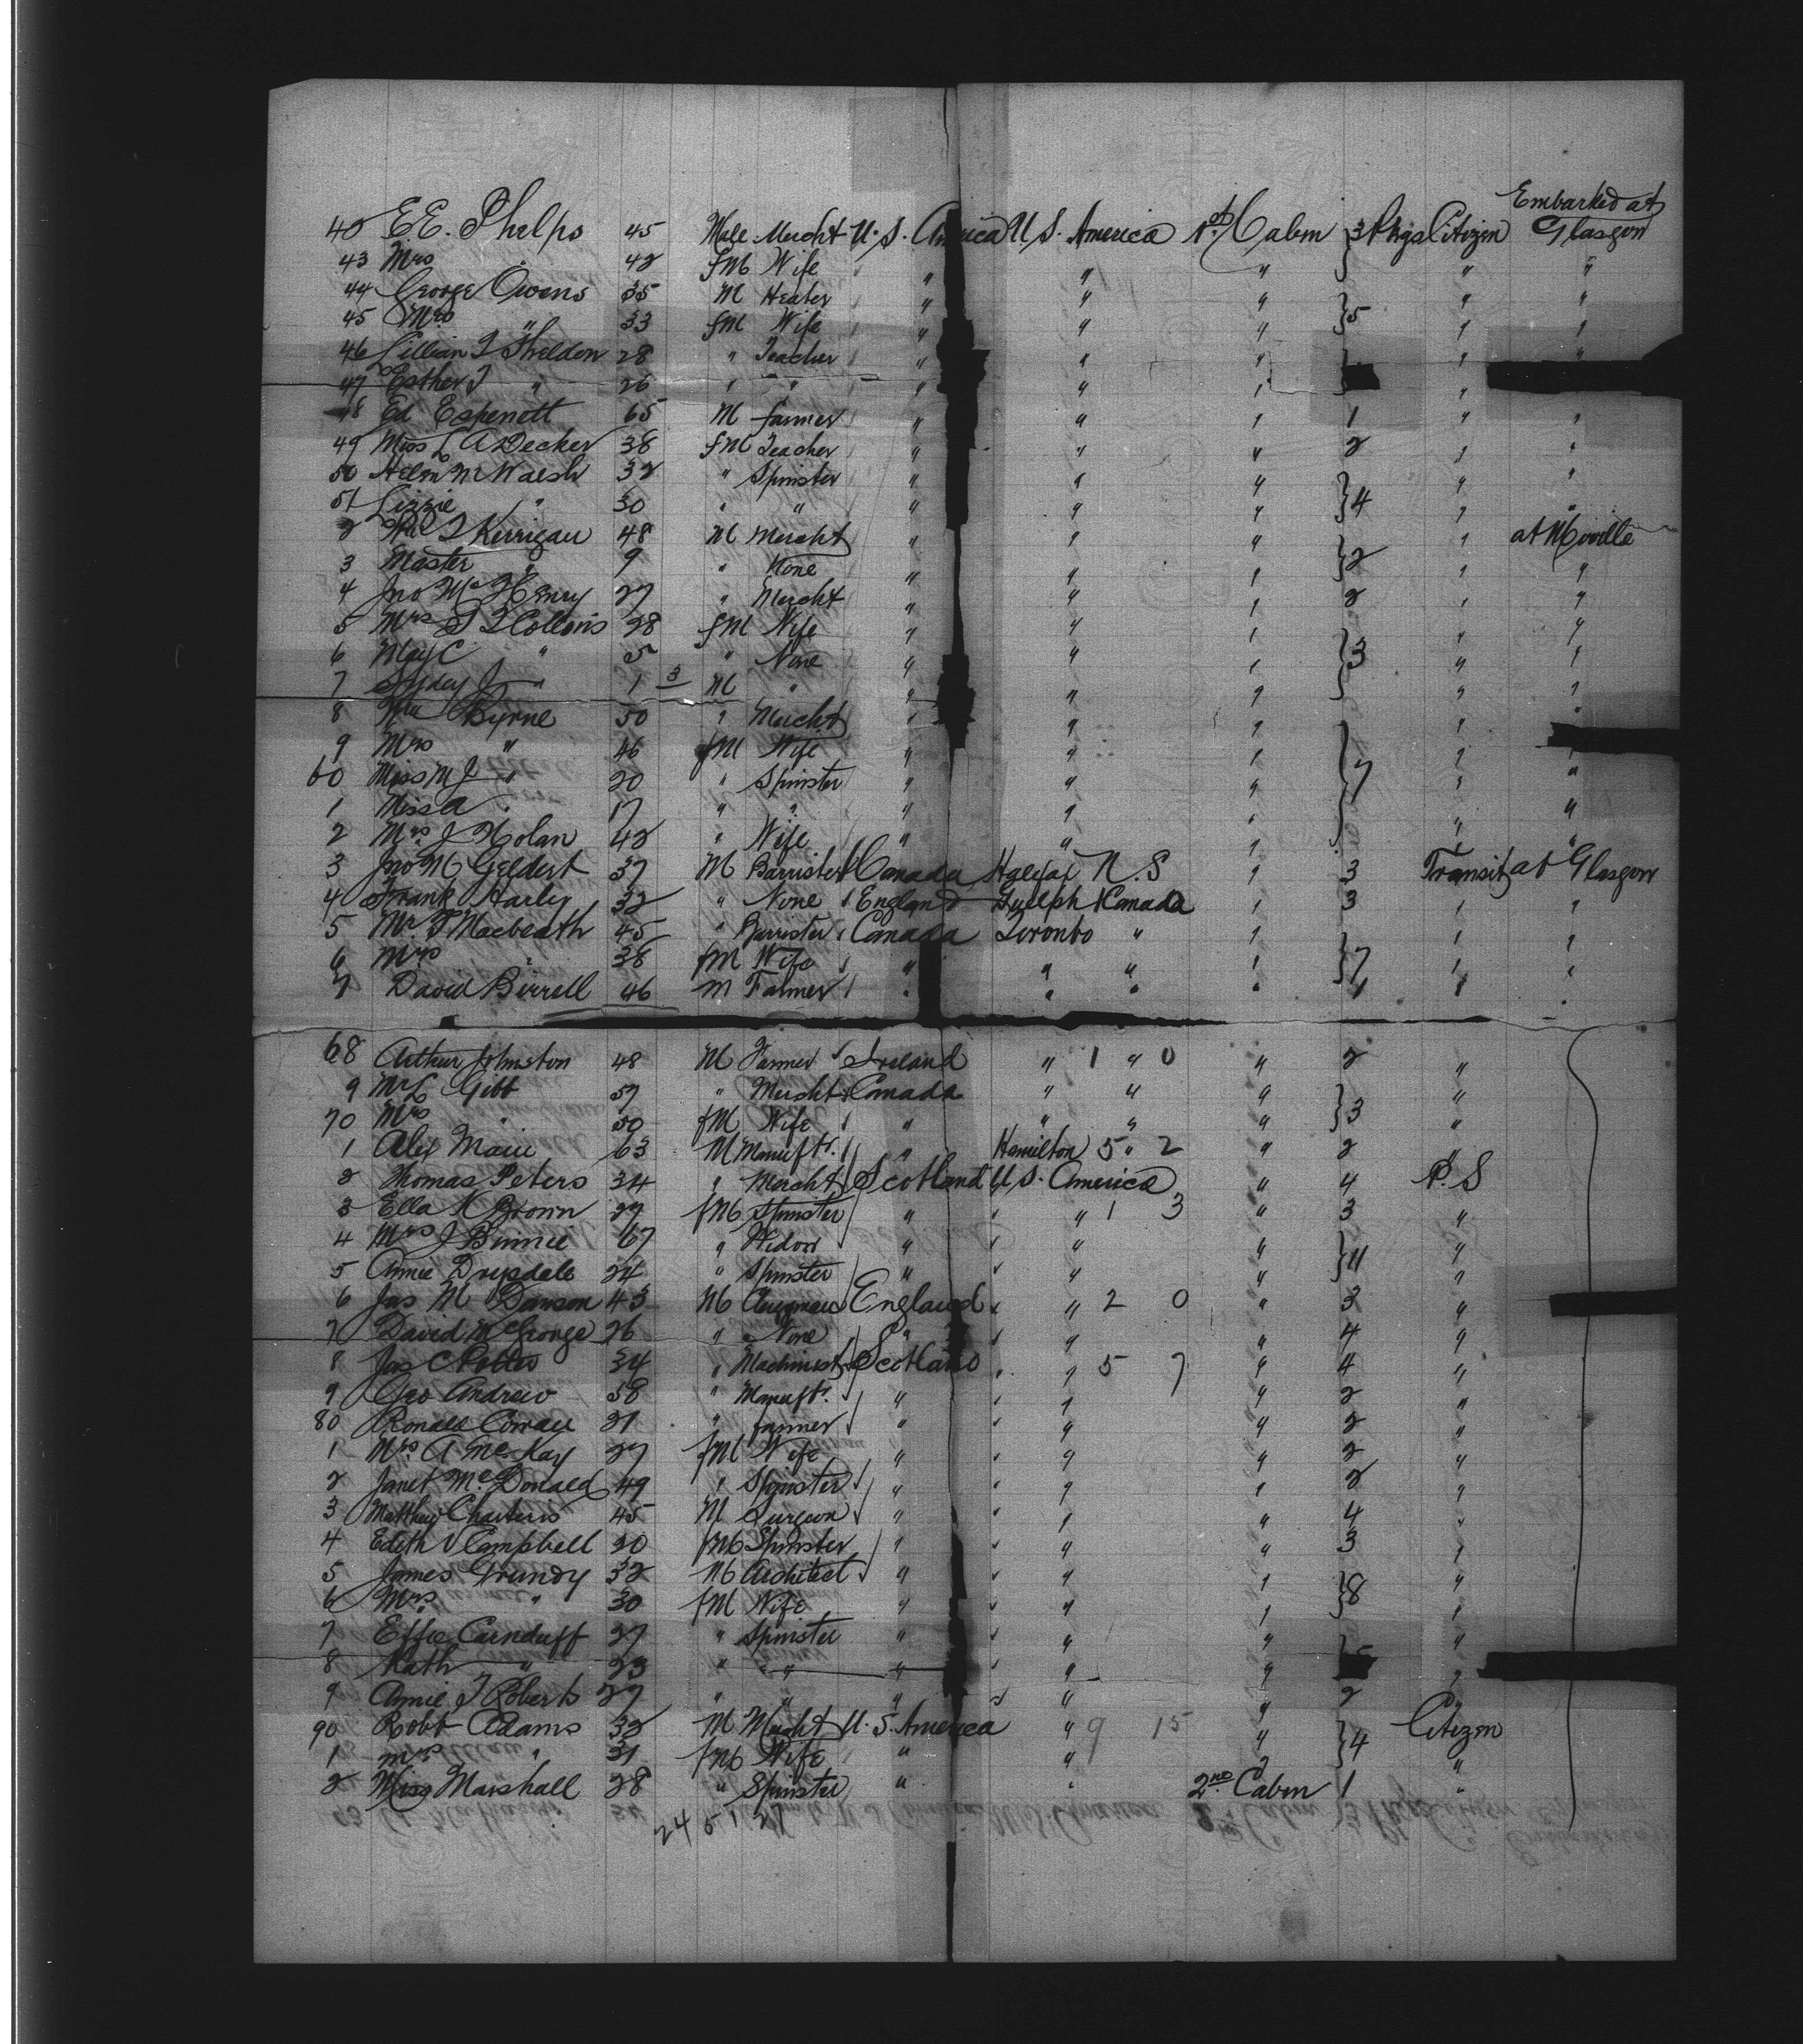 Embarked at
40 E E. Phelps 45 Male Mercht U. S. America U S. America 1st Cabin 3 Pkgs Citizen Glasgow
43 Mrs " 42 fM Wife " " " " "
44 George Owens 35 M Heater " " " " "
45 Mrs " 33 fM Wife " " " 5 " "
46 Lillian Sheldon 28 " Teacher " " " " "
47 Esther " 26 " " " " " "
48 Ed Espenott 65 M farmer " " " 1 " "
49 Miss L A Decker 38 fM Teacher " " " 2 " "
50 Helen M Walsh 32 " Spinster " " " " "
51 Lizzie " 30 " " " " " 4 " "
2 Kerrigan 48 M Mercht " " " " at Moville
3 Master " 9 " None " " " 2 " "
4 Jno McHenry 27 " Mercht " " " 2 " "
5 Mrs Collins 28 fM Wife " " " " "
6 May C " 5 " None " " " 3 " "
7 J " 1 3 M " " " " " "
8 Wm Byrne 50 " Mercht " " " " "
9 Mrs " 46 fM Wife " " " " "
60 Miss M J " 20 " Spinster " " " 7 " "
1 Miss A " 17 " " " " " " "
2 Mrs J Nolan 42 " Wife " " " " "
3 Jno M Geldert 37 M Barrister Canada Halifax N. S " 3 Transit at Glasgow
4 Frank Harley 32 " None England Guelph Canada " 3 " "
5 Mr Macbeath 45 " Barrister Canada Toronto " " " "
6 Mrs " 38 fM Wife " " " " 7 " "
7 David Birrell 46 M Farmer " " " " 1 " "
68 Arthur Johnston 48 M Farmer Ireland " 1 " 0 " 2 "
9 Mr Gibb 57 " Mercht Canada " " " "
70 Mrs " 50 fM Wife " " " " 3 "
1 Alex Main 63 M Manuftr. " Hamilton 5 " 2 " 2 "
2 Thomas Peters 34 " Mercht Scotland U S. America " 4 P. S
3 Ella K Brown 27 fM Spinster " " " 1 3 " 3 "
4 Mrs J Binnie 67 " Widow " " " " "
5 Annie Drysdale 24 " Spinster " " " " 11 "
6 Jas M Dawson 43 M Clergyman England " " 2 0 " 3 "
7 David McGeorge 26 " None " " " " 4 "
8 Jas C 34 " Machinist Scotland " " 5 7 " 4 "
9 Geo Andrew 58 " Manuftr. " " " " 2 "
80 Ronald Cowan 21 " farmer " " " " 2 "
1 Mrs A McKay 27 fM Wife " " " " 2 "
2 Janet McDonald 49 " Spinster " " " " 2 "
3 Matthew Charteris 45 M Surgeon " " " " 4 "
4 Edith V Campbell 20 fM Spinster " " " " 3 "
5 James Grundy 32 M Architect " " " " "
6 Mrs " 30 fM Wife " " " " 8 "
7 Effie Carnduff 27 " Spinster " " " " "
8 Kath " 23 " " " " " " "
9 Annie Roberts 27 " " " " " " 2 "
90 Robt Adams 32 M Mercht U. S. America " 9 15 " Citizen
1 Mrs " 31 fM Wife " " " 4 "
2 Miss Marshall 28 " Spinster " " 2nd Cabin 1 "
24 5 1 21